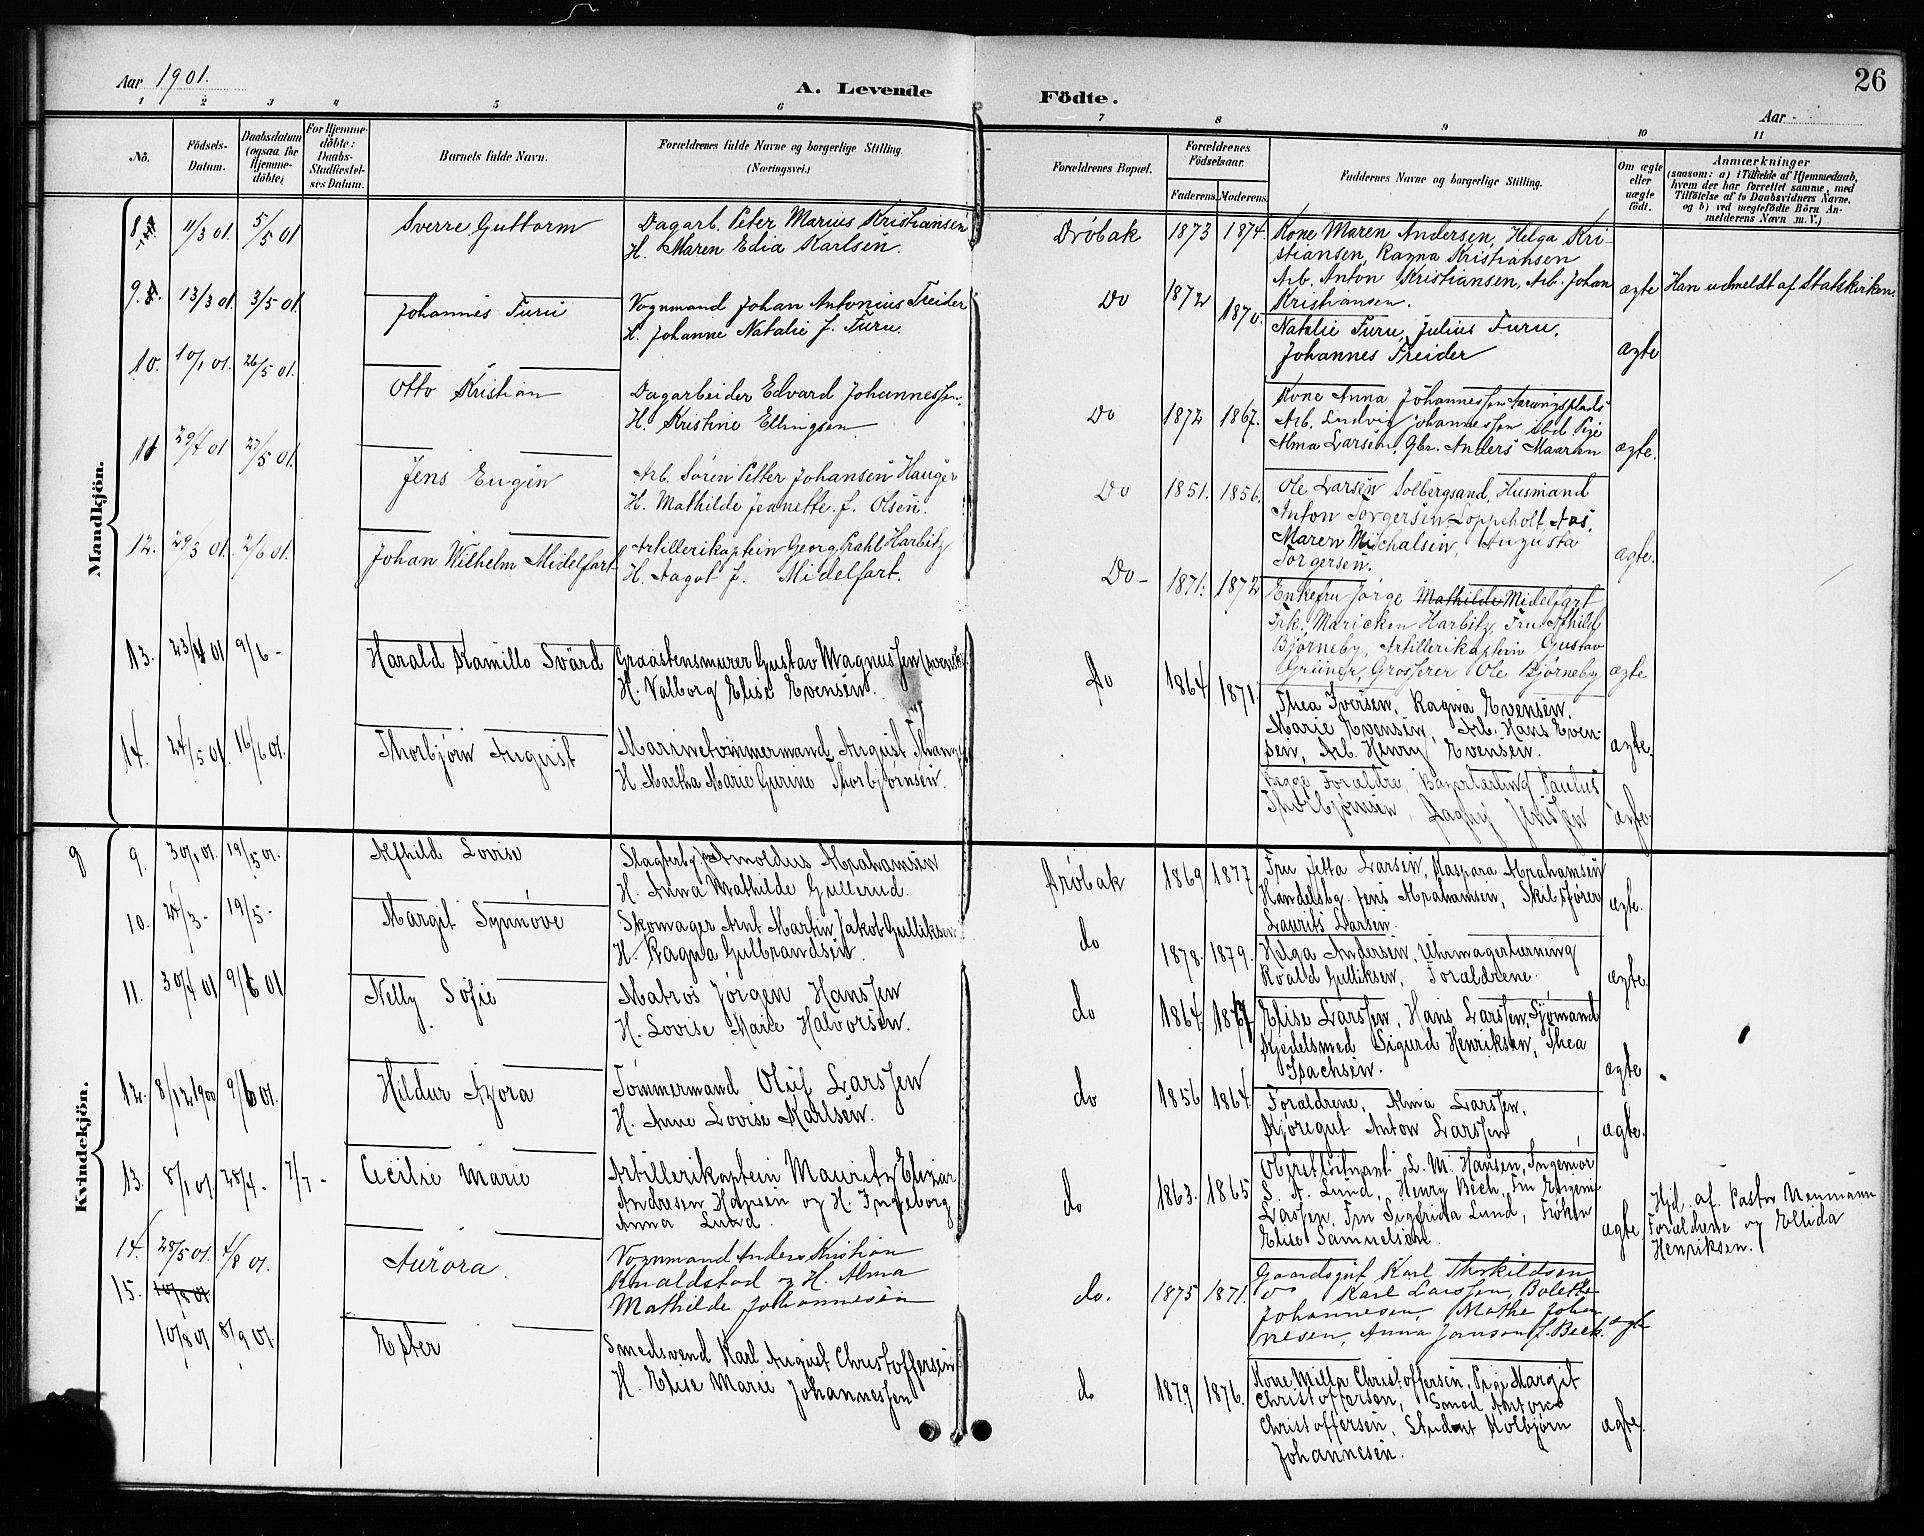 Aar 1901.
A. Levende Födte.
26
Aar
1 2 3 4 5 6 7 8 9 10 11
No.
Födsels-Datum.
Daabsdatum (ogsaa for Hjemme-döbte)
For Hjemme-döbte: Daabs-Stadfæstel-ses Datum.
Barnets fulde Navn.
Forældrenes fulde Navne og borgerlige Stilling. (Næringsvei.)
Forældrenes Bopæl.
Forældrenes Födselsaar.
Faderens. Moderens.
Faddernes Navne og borgerlige Stilling.
Om ægte eller uægte födt.
Anmærkninger
(saasom: a) i Tilfælde af Hjemmedaab,
hvem der har forrettet samme, med
Tilföielse af to Daabsvidners Navne,
og b) ved uægtefödte Börn An-
melderens Navn m. V.)
Mandkjön.
8. 11/3 01. 5/5 01 Sverre Guttorm
Dagarb. Peter Marius Kristiansen
H. Maren Edia Karlsen.
Dröbak 1873 1874.
Kone Maren Andersen, Helga Kri-
stiansen, Ragna Kristiansen
Arb. Anton Kristiansen, Arb. Johan
Kristiansen.
ægte
Han udmeldt af Statskirken.
9. 13/3 01. 3/5 01. Johannes Furu
Vognmand Johan Antonius Treider
H. Johanne Natalie f. Furu.
Do 1872 1870.
Natalie Furu, Julius Furu,
Johannes Treider
ægte
10. 10/1 01. 26/5 01. Otto Kristian
Dagarbeider Edvard Johannessen.
H. Kristine Ellingsen.
Do 1872 1867.
Kone Anna Johannessen
Arb. Ludvig Johannessen ibd Pige
Alma Larsen, Gbr. Anders Maaren
ægte.
11 29/4 01 27/5 01. Jens Eugen
Arb. Sören Petter Johansen Hauger
H. Mathilde Jeanette f. Olsen.
Do 1851. 1856.
Ole Larsen Solbergsand, Husmand
Anton Torgersen, Loppeholt, Aas,
Maren Michalsen, Augusta
Torgersen.
ægte.
12. 29/3 01. 2/6 01. Johan Wilhelm Midelfart
Artillerikaptein Georg Prahl Harbitz
H. Aagot f. Midelfart.
Do- 1871. 1872
Enkefru Jörge Mathilde Midelfart
Frk. Maricken Harbitz, Fru Afhild
Björneby, Artillerikaptein Gustav
Grüner, Grosserer Ole Björneby
ægte
13. 23/4 01 9/6 - Harald Kamillo Svärd
Graastensmurer Gustav Magnussen (svensk)
H. Valborg Elise Evensen.
Do 1864 1871.
Thea Iversen, Ragna Evensen,
Marie Evensen, Arb. Hans Even-
sen, Arb. Henry Evensen.
ægte.
14. 24/5 01. 16/6 01. Thorbjörn August
Marinetömmermand August
H. Martha Marie Gurine Thorbjörnsen.
Begge Forældre, Paulus
Thorbjørnsen, Jenssen
ægte.
Kvindekjön.
9
9. 30/1 01. 19/5 01. Alfhild Lovise
Arnoldus Abrahamsen
H. Anna Mathilde Gullerud.
Dröbak 1869 1877
Fru Jetta Larsen, Kaspara Abrahamsen
Handelsbg. Jens Abrahamsen, Skibsförer
Laurits Larsen.
ægte.
10. 24/3 - 19/5 - Margit Synnöve
Skomager Arnt Martin Jakob Gulliksen
H. Ragna Gulbrandsen.
do 1878. 1879.
Helga Andersen, Uhrmagerlærning
Roald Gulliksen, Forældrene.
ægte.
11. 30/4 01 9/6 01 Nelly Sofie
Matros Jörgen Hanssen
H. Lovise Marie Halvorsen.
do 1864 1867
Elise Larssen, Hans Larssen, Sjömand
Kjedelsmed Sigurd Henriksen, Thea
Isachsen.
ægte
12. 8/12 1900 9/6 01. Hildur Azora
Tömmermand Oluf Larssen
H. Anne Lovise Karlsen.
do 1856 1864
Forældrene, Alma Larssen,
Kjöregut Anton Larssen
ægte.
13. 8/1 01. 28/4 - 7/7 - Cecilie Marie
Artillerikaptein Mauritz Elizar
Andresen Hansen og H. Ingeborg
Anna Lund.
do 1863. 1865
Oberstlöitnant L. M. Hansen, Ingeniör
S. A. Lund, Henry Bech, Fru Eugenie
Larssen, Fru Sigfrida Lund, Fröken
Elise Samuelsen.
ægte
Hjd. af Pastor Neumann
Forældrene og Ellida
Henriksen.
14. 28/5 01. 4/8 01. Aurora.
Vognmand Anders Kristian
Knaldstad og H. Alma
Mathilde Johannesen
do. 1875 1871.
Gaardsgut Karl Thorkildsen
do Karl Larssen, Bolette
Johannesen, Mathe Johan-
nesen, Anna Jonson f. Beck.
ægte
15. 10/8 01
10/8 01 8/9 01. Ester
Smedsvend Karl August Christoffersen
H. Elise Marie Johannessen
do 1879 1876.
Kone Milla Christoffersen, Pige Margit
Christoffersen, Smed Anton
Christoffersen, Student Kolbjörn
Johannesen.
ægte.